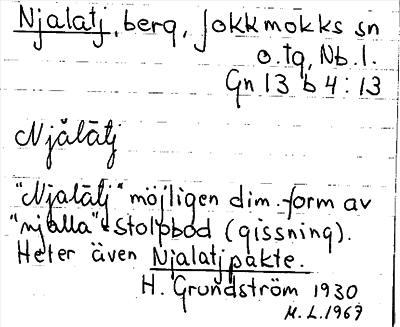 Njalatj, berg, Jokkmokks sn
o. tg, Nb. l.
Gn 13 b 4 : 13
Njălātj
"Njalātj" möjligen dim.-form av
"njalla" = stolpbod (gissning).
Heter även Njalatjpakte.
H. Grundström 1930
M. L. 1967